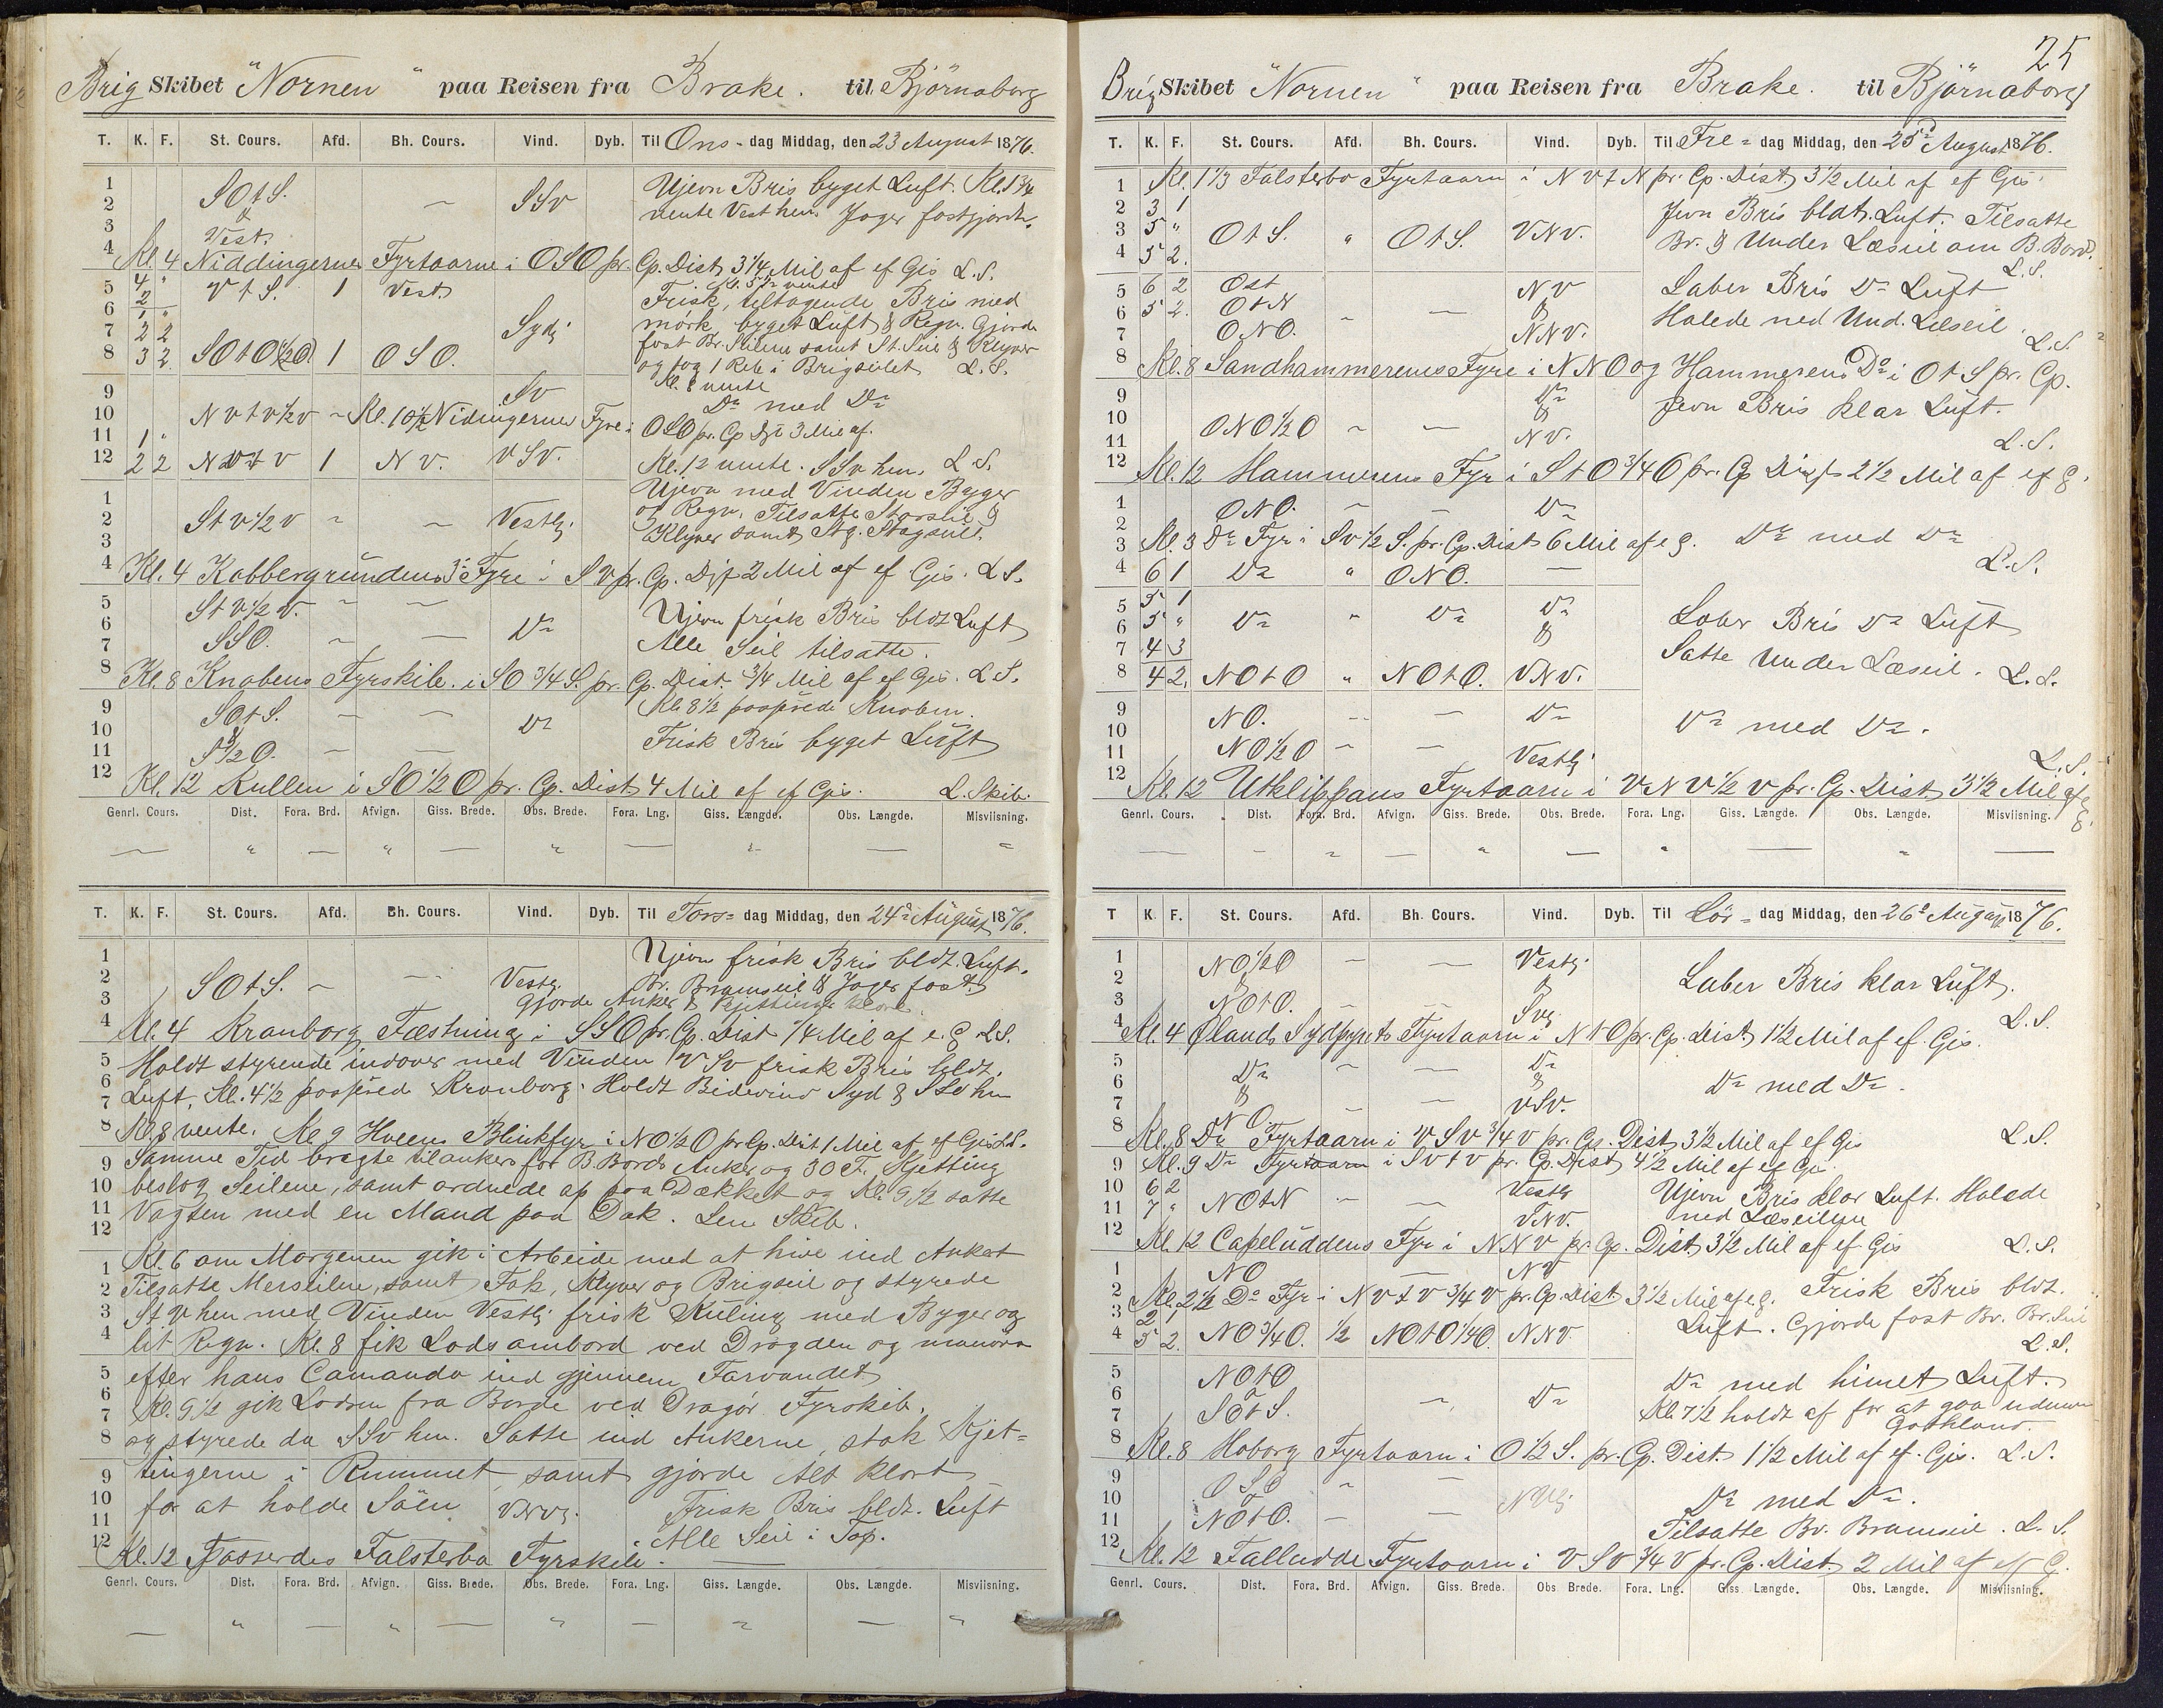 Brig Skibet "Nornen" paa Reisen fra Brake. til Björnaborg
T. K. F. St. Cours. Afd. Bh. Cours. Vind. Dyb. Til Ons- dag Middag, den 23 August 1876.
1 Ujevn Bris byget Luft. Kl. 1 3/4
2 SOtS. — SSv vente Vest hen. Jager fastgjordt.
3 &
4 Vest.
Kl. 4 Niddingernes Fyrtaarne i OSO pr. Cp. Dist. 3 1/4 Mil af ef Gis L.S.
5 4 " VtS. 1 Vest. Kl. 5 1/2 vente
2 Frisk, tiltagende Bris med
6 1 " Sydl. mørk byget Luft & Regn. Gjorde
7 2 2 fast Br. Seilene samt St. Seil & Klyver
8 3 2 SOtO 1/2 O 1 OSO. og tog 1 Reb i Brigseilet L.S.
9 Sv Kl. 8 vente
10 NvtV 1/2 v - Kl. 10 1/2 Nidingernes Fyre i Do med Do
11 1 " OSO pr. Cp Dist 3 Mil af.
12 2 2 Nvtv 1 Nv. VSv. Kl. 12 vente. SSv hen. L.S.
1 Ujevn med Vinden Byger
2 Stv 1/2 v " — Vestlg. og Regn. Tilsatte Storseil &
3 Klyver samt Stg. Stagseil.
4 Kl. 4 Kobbergrundens Fyre i SV pr. Cp. Dist 2 Mil af ef Gis. L.S.
5 StV 1/2 V. " — Ujevn frisk Bris bldt Luft
6 Do
7 SSO. " — Alle Seil tilsatte.
8 Kl. 8 Knobens Fyrskib. i SO 3/4 S. pr. Cp. Dist. 3/4 Mil af ef Gis. L.S.
9 SOtS. — — Kl. 8 1/2 passerede Knoben.
10 & Do
11 S 1/2 O. — — Frisk Bris byget Luft
12 Kl. 12 Kullen i SO 1/2 O pr. Cp. Dist 4 Mil af ef Gis. L. Skib.
Genrl. Cours. Dist. Fora. Brd. Afvign. Giss. Brede. Obs. Brede. Fora. Lng. Giss. Længde. Obs. Længde. Misviisning.
— " — " — " — " — "
T. K. F. St. Cours. Afd. Bh. Cours. Vind. Dyb. Til Tors= dag Middag, den 24de August 1876.
1 Ujevn frisk Bris bldt. Luft.
2 SOtS. — — Vestlg. Br. Bramseil & Jager fast.
3 Gjorde Anker & Kjettinge klare.
4 Kl. 4 Kronborg Fæstning i SSO pr. Cp. Dist 1/4 Mil af e. G L.S.
5 Holdt styrende indover med Vinden VSv frisk Bris bldt.
6
7 Luft. Kl. 4 1/2 passered Kronborg. Holdt Bidevind Syd & SSO hen
8 Kl. 8 vente. Kl. 9 Hveens Blinkfyr i NO 1/2 O pr. Cp. Dist 1 Mil af ef Gis. L.S.
9 Samme Tid bragte tilankers for B. Bords Anker og 30 F. Kjetting
10 beslog Seilene, samt ordnede op paa Dækket og Kl. 9 1/2 satte
11 Vagten med en Mand paa Dæk. Len Skib.
12
1 Kl. 6 om Morgenen gik i Arbeide med at hive ind Ankeret
2 Tilsatte Merseilene, samt Fok, Klyver og Brigseil og styrede
3 StV hen med Vinden Vestlg. frisk Kuling med Byger og
4 lit Regn. Kl. 8 fik Lods ombord ved Drogden og manøvr
5 efter hans Comando ind gjennem Farvandet
6
7 Kl. 9 1/2 gik Lodsen fra Borde ved Dragör Fyrskib.
8 og styrede da SSv hen. Satte ind Ankerne, stak Kjet=
9 tingerne i Rummet, samt gjorde Alt klart
10 for at holde Söen VNVlg. Frisk Bris bldt. Luft
11 Alle Seil i Top.
12 Kl. 12 Passerdes Falsterbo Fyrskib.
Genrl. Cours. Dist. Fora. Brd. Afvign. Giss. Brede. Obs. Brede. Fora. Lng. Giss. Længde. Obs. Længde. Misviisning.
— " — " — " — " — "
25
Brig Skibet "Nornen" paa Reisen fra Brake. til Björnaborg
T. K. F. St. Cours. Afd. Bh. Cours. Vind. Dyb. Til Fre= dag Middag, den 25de August 1876.
1 Kl. 1 1/3 Falsterbo Fyrtaarn i NvtN pr. Cp. Dist. 3 1/2 Mil af ef Gis.
2 3 1 Jevn Bris bldt. Luft. Tilsatte
3 5 " OtS. " OtS. VNv.
4 5 2. Br. & Under Læseil om B. Bord.
L.S.
5 6 2 Ost NV Laber Bris Do Luft
6 5 2. OtN — — &
7 ONO. NNv. Halede ned Und. Læseil.
L.S.
8 Kl. 8 Sandhammerens Fyre i NNO og Hammerens Do i OtS pr. Cp.
9 Do Jevn Bris klar Luft.
10 ONO 1/2 O " — &
11 NV. L.S.
12 Kl. 12 Hammerens Fyr i StO 3/4 O pr. Cp Dist 2 1/2 Mil af ef g.
1 ONO. — — Do
2
3 Kl. 3 Do Fyr i Sv 1/2 S. pr. Cp. Dist 6 Mil af e g. Do med Do
4 6 1 Do " ONO. — L.S.
5 5 1 Do
6 5 " Do " Do & Laber Bris Do Luft
7 4 3 Satte Under Læseil. L.S.
8 4 2. NOtO " NOtO. VNv.
9 NO. -- — Do Do med Do.
10
11 NO 1/2 O — — Vestlg. L.S.
12 Kl. 12 Utklippans Fyrtaarn i VNV 1/2 v pr. Cp. Dist 3 1/2 Mil af e g.
Genrl. Cours. Dist. Fora. Brd. Afvign. Giss. Brede. Obs. Brede. Fora. Lng. Giss. Længde. Obs. Længde. Misviisning.
— - " — " — " — " —
T K. F. St. Cours. Afd. Bh. Cours. Vind. Dyb. Til Lör= dag Middag, den 26de August 1876.
1 NO 1/2 O — — Vestlg.
2 & & Laber Bris klar Luft.
3 NOtO. — — Svlg. L.S.
4 Kl. 4 Ølands Sydpynts Fyrtaarn i NtO pr. Cp. Dist. 1 1/2 Mil af ef Gis.
5 Do — — Do
6 & & Do med Do.
7 NO. — — VSV.
8 Kl. 8 Do Fyrtaarn i VSv 3/4 v pr. Cp. Dist 3 1/2 Mil af ef Gis L.S.
9 Kl. 9 Do Fyrtaarn i Svtv pr. Cp. Dist 4 1/2 Mil af ef Gis.
10 6 2 NOtN — — Vestlg Ujevn Bris klar Luft. Halede
11 7 " VNV. ned Læseilene
12 Kl. 12 Capeluddens Fyr i NNv pr. Cp. Dist 3 1/2 Mil af ef Gis L.S.
1 NO — NV
2 Kl. 2 1/2 Do Fyr i Nvtv 3/4 v pr. Cp. Dist 3 1/2 Mil af e g. Frisk Bris bldt.
3 2 1 Luft. Gjorde fast Br. Br. Seil
4 5 2. NO 3/4 O. 1/2 NOtO 1/4 O. NNV. L.S.
5 NOtO Do med himet Luft.
6 & —, Do
7 SOtS. Kl. 7 1/2 holdt af for at gaa udenom
Gothland.
8 Kl. 8 Hoborg Fyrtaarn i O 1/2 S. pr. Cp. Dist. 1 1/2 Mil af ef Gis. L.S.
9 OSO " — Do med Do.
10 & NVlg
11 NOtO. — — Tilsatte Br. Bramseil. L.S.
12 Kl. 12 Falludde Fyrtaarn i VSv 3/4 v pr. Cp. Dist. 2 Mil af ef G.
Genrl. Cours. Dist. Fora. Brd. Afvign. Giss. Brede. Obs Brede. Fora. Lng. Giss Længde. Obs. Længde. Misviisning.